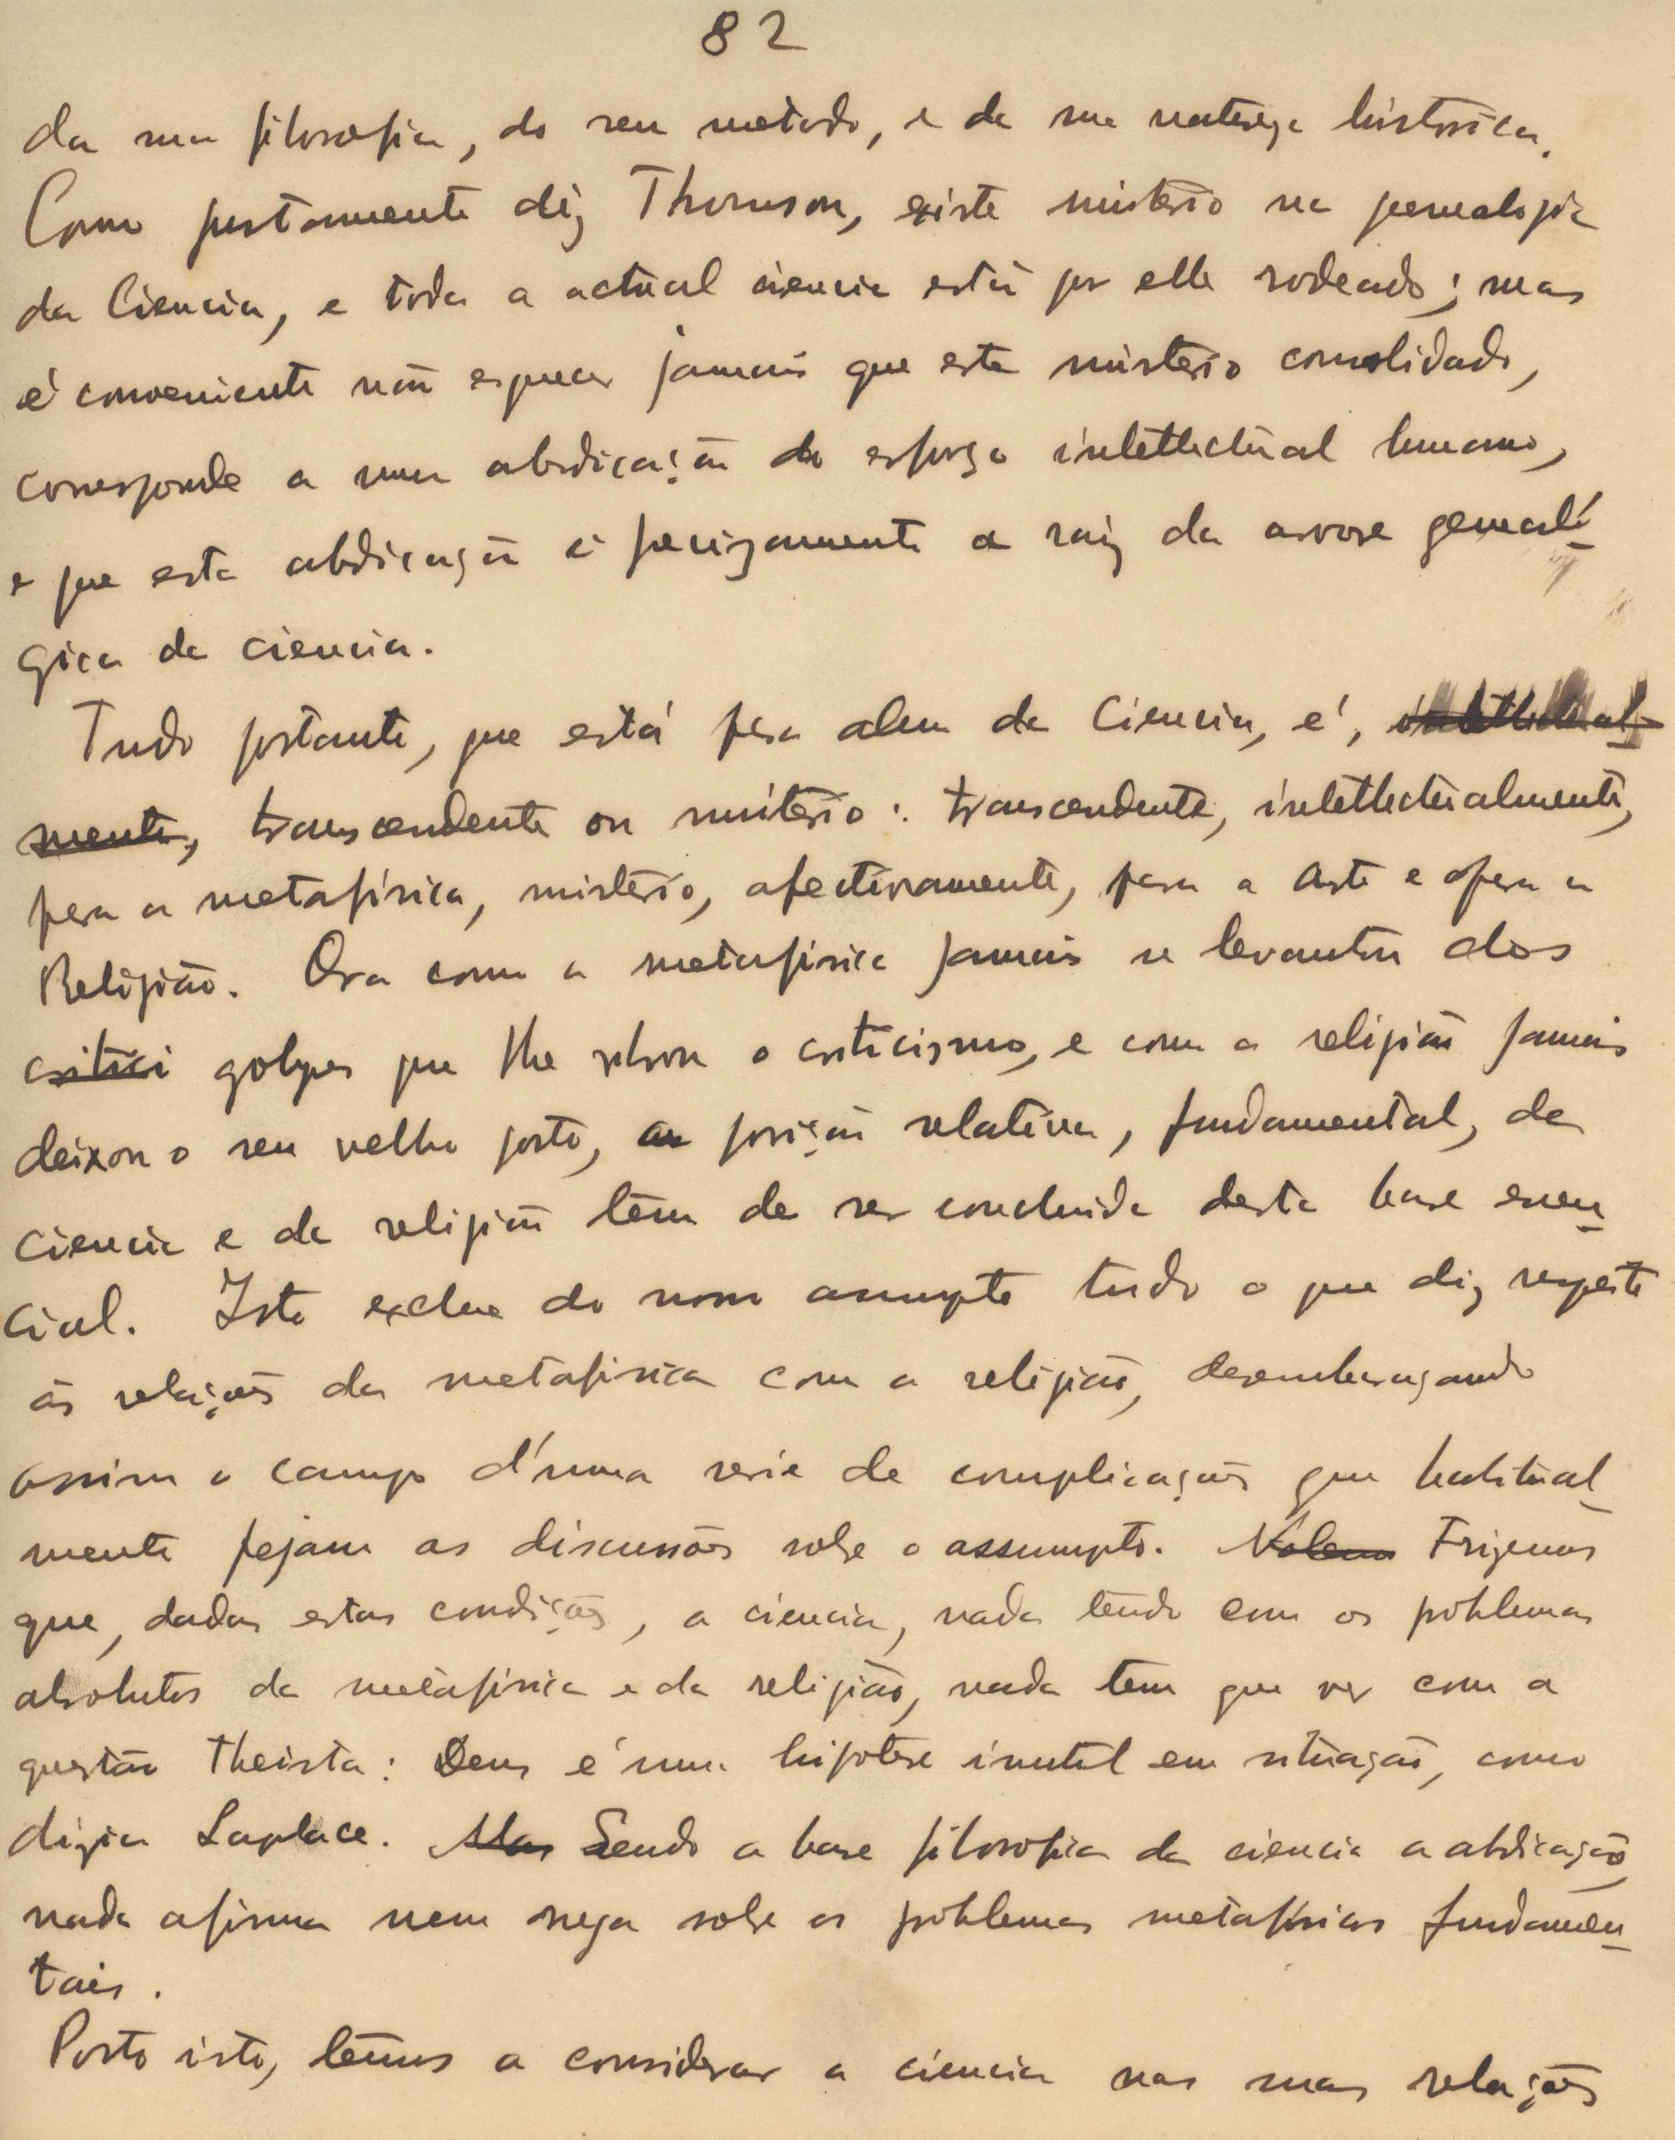 82
da sua filosofia, do seu metodo, e da sua natureza historica.
Como justamente diz Thomson, existe misterio na genealogia
da Ciencia, e toda a actual ciencia está por elle rodeado; mas
é conveniente não esquecer jamais que este misterio consolidado,
corresponde a uma abdicação do esforço intellectual humano,
e que esta abdicação é precizamente a raiz da arvore genealó-
gica da ciencia.
Tudo portanto, que está pera alem da Ciencia, é, intellectual-
mente, transcendente ou mistério: transcendente, intellectualmente,
pera a metafísica, mistério, afectivamente, pera a Arte e pera a
Religião. Ora como a metafisica jamais se levantou dos
critici golpes que lhe vibrou o criticismo, e como a religião jamais
deixou o seu velho posto, a posição relativa, fundamental, da
ciencia e da religião tem de ser concluida desta base essen-
cial. Isto exclue do nosso assumpto tudo o que diz respeito
ás relações da metafisica com a religião, desembaraçando
assim o campo d'uma serie de complicações que habitual-
mente pejam as discussões sobre o assumpto. Notemos Frizemos
que, dadas estas condições, a ciencia, nada tendo com os problemas
absolutos da metafisica e da religião, nada tem que ver com a
questão theista: Deus é uma hipotese inutil em situação, como
dizia Laplace. Mas Sendo a base filosofica da ciencia a abdicação
nada afirma nem nega sobre os problemas metafisicos fundamen-
tais.
Posto isto, temos a considerar a ciencia nas suas relações